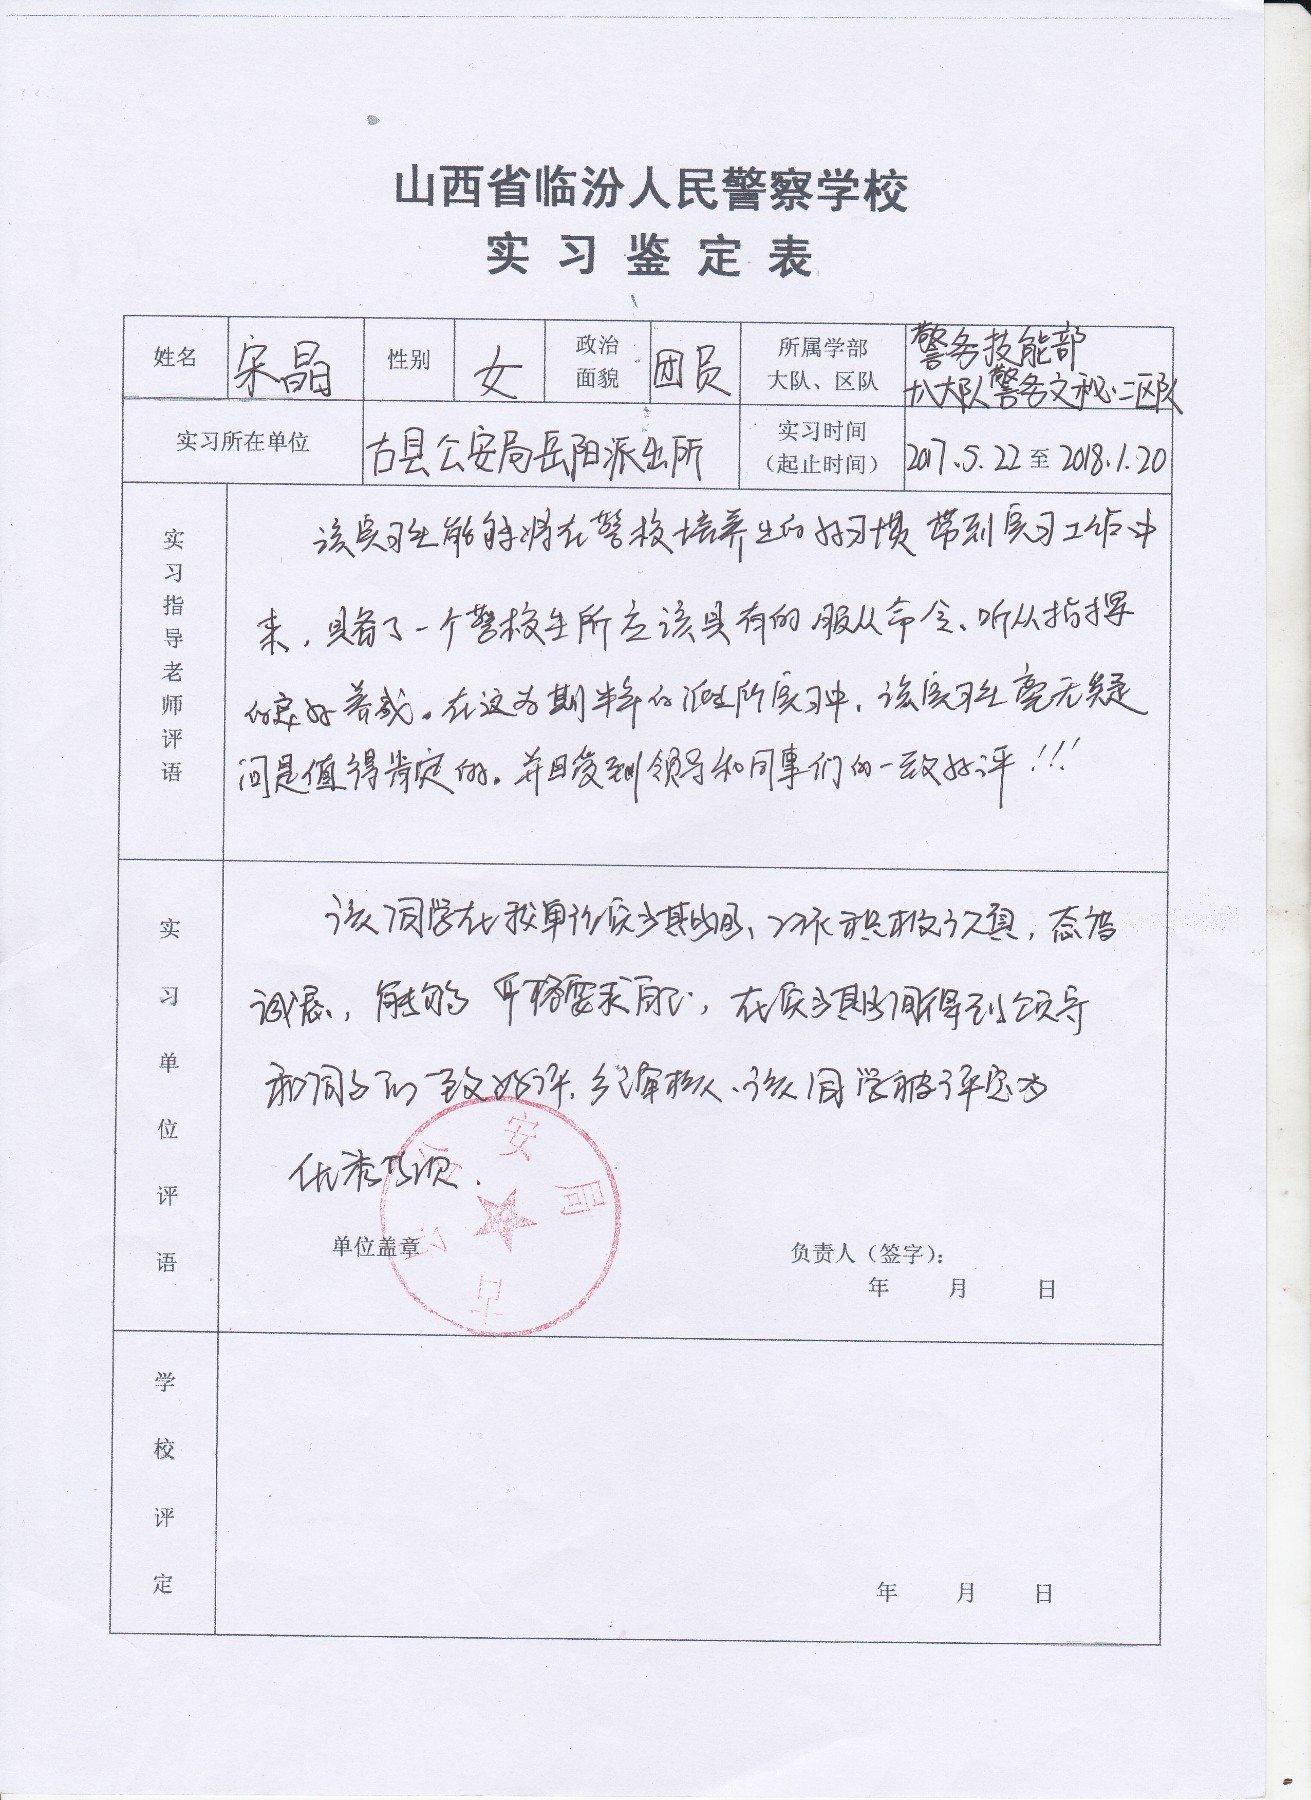 山西省临汾人民警察学校
实习鉴定表
姓名 宋晶 性别 女 政治面貌 团员 所属学部大队、区队 警务技能部
八大队警务文秘二区队
实习所在单位 古县公安局岳阳派出所 实习时间（起止时间） 2017.5.22 至 2018.1.20
实习指导老师评语
该实习生能够将在警校培养出的好习惯带到实习工作中
来，具备了一个警校生所应该具有的服从命令、听从指挥
的良好养成。在这为期半年的派出所实习中，该实习生毫无疑
问是值得肯定的。并且受到领导和同事们的一致好评！！！
实习单位评语
该同学在我单位实习期间、工作积极认真，态度
诚恳，能够严格要求自己，在实习期间得到领导
和同事的一致好评，经审核、该同学被评定为
优秀
单位盖章
古县公安局
负责人（签字）：
年 月 日
学校评定
年 月 日